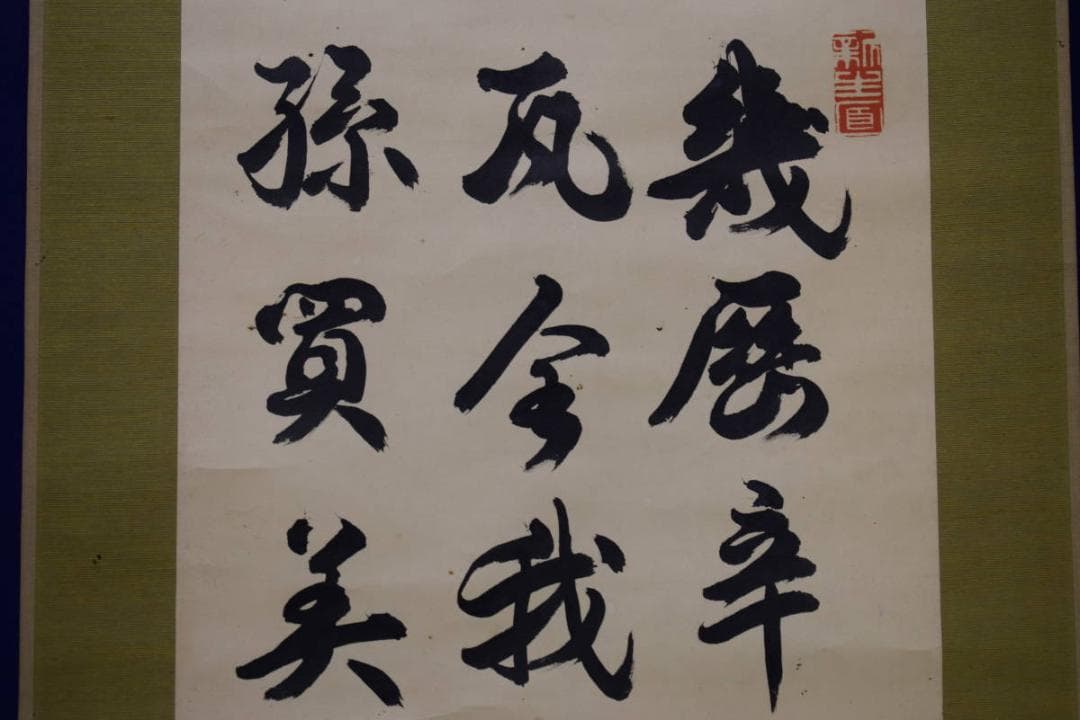 幾歴辛
瓦全我
孫買美